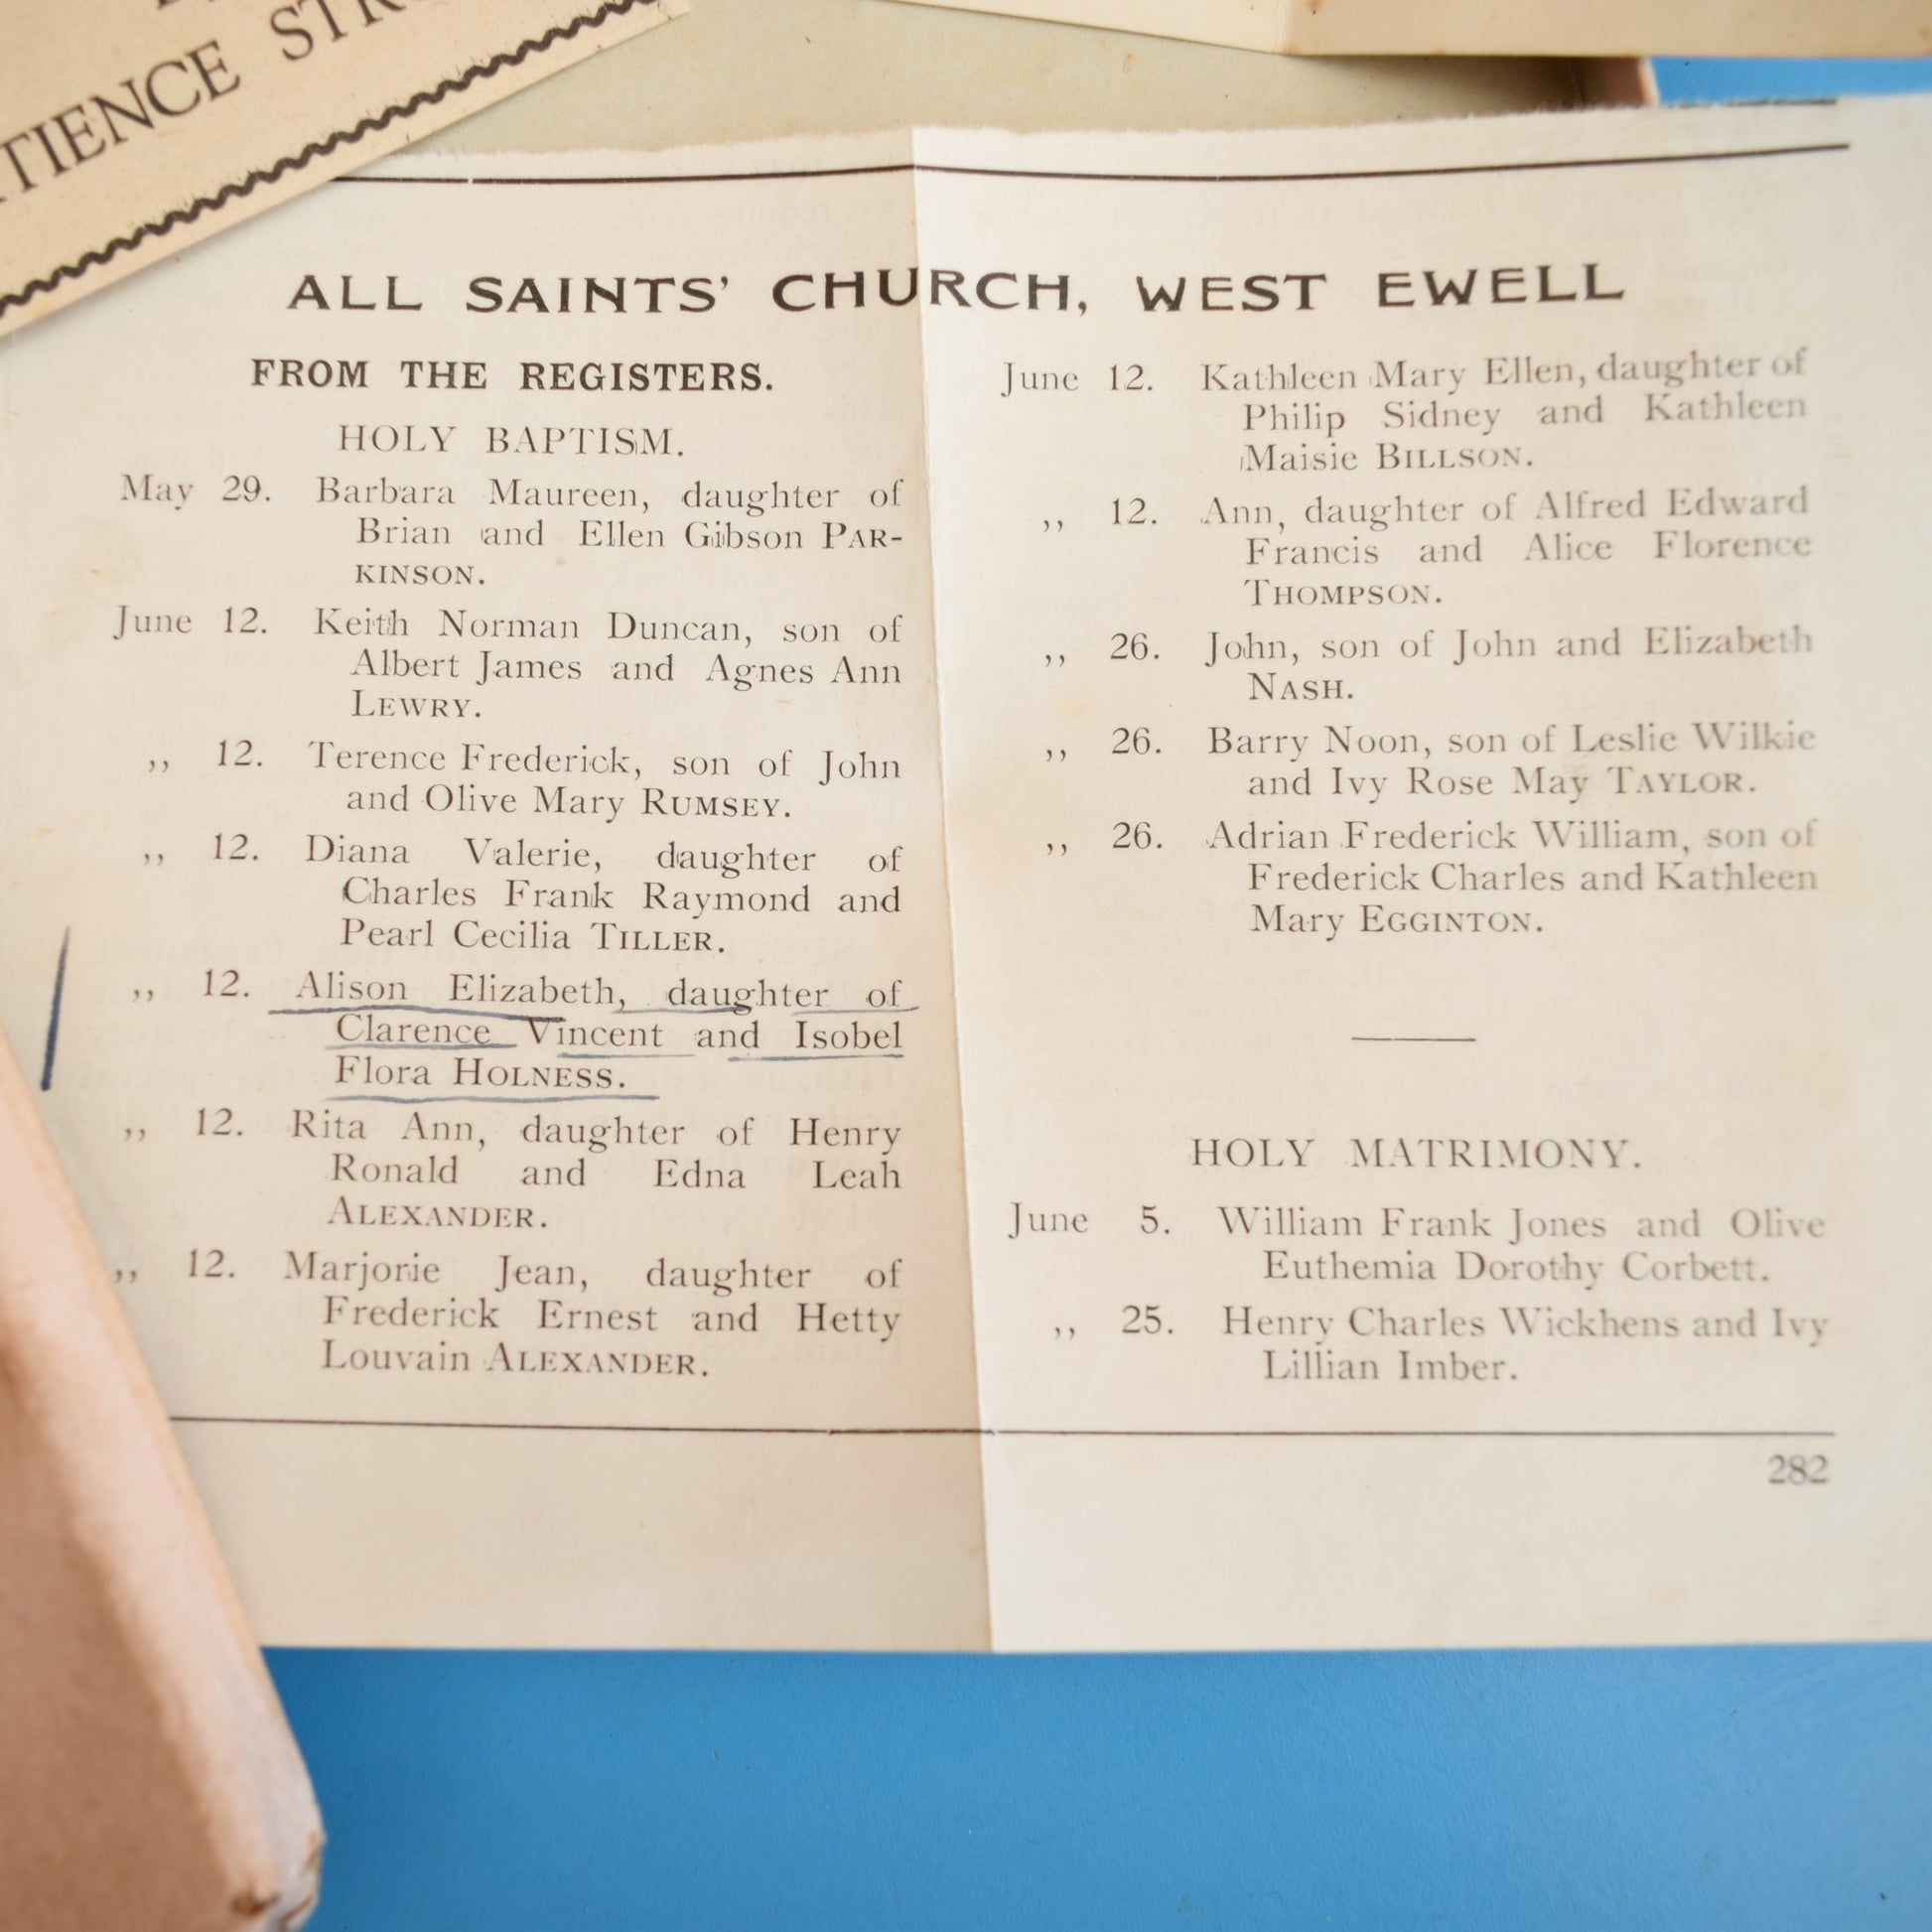 TIENCE
ALL SAINTS' CHURCH, WEST EWELL
FROM THE REGISTERS.
HOLY BAPTISM.
May 29. Barbara Maureen, daughter of
Brian and Ellen Gibson PAR-
KINSON.
June 12. Keith Norman Duncan, son of
Albert James and Agnes Ann
LEWRY.
,, 12. Terence Frederick, son of John
and Olive Mary RUMSEY.
,, 12. Diana Valerie, daughter of
Charles Frank Raymond and
Pearl Cecilia TILLER.
,, 12. Alison Elizabeth, daughter of
Clarence Vincent and Isobel
Flora HOLNESS.
,, 12. Rita Ann, daughter of Henry
Ronald and Edna Leah
ALEXANDER.
,, 12. Marjorie Jean, daughter of
Frederick Ernest and Hetty
Louvain ALEXANDER.
June 12. Kathleen Mary Ellen, daughter of
Philip Sidney and Kathleen
Maisie BILLSON.
,, 12. Ann, daughter of Alfred Edward
Francis and Alice Florence
THOMPSON.
,, 26. John, son of John and Elizabeth
NASH.
,, 26. Barry Noon, son of Leslie Wilkie
and Ivy Rose May TAYLOR.
,, 26. Adrian Frederick William, son of
Frederick Charles and Kathleen
Mary EGGINTON.
HOLY MATRIMONY.
June 5. William Frank Jones and Olive
Euthemia Dorothy Corbett.
,, 25. Henry Charles Wickhens and Ivy
Lillian Imber.
282